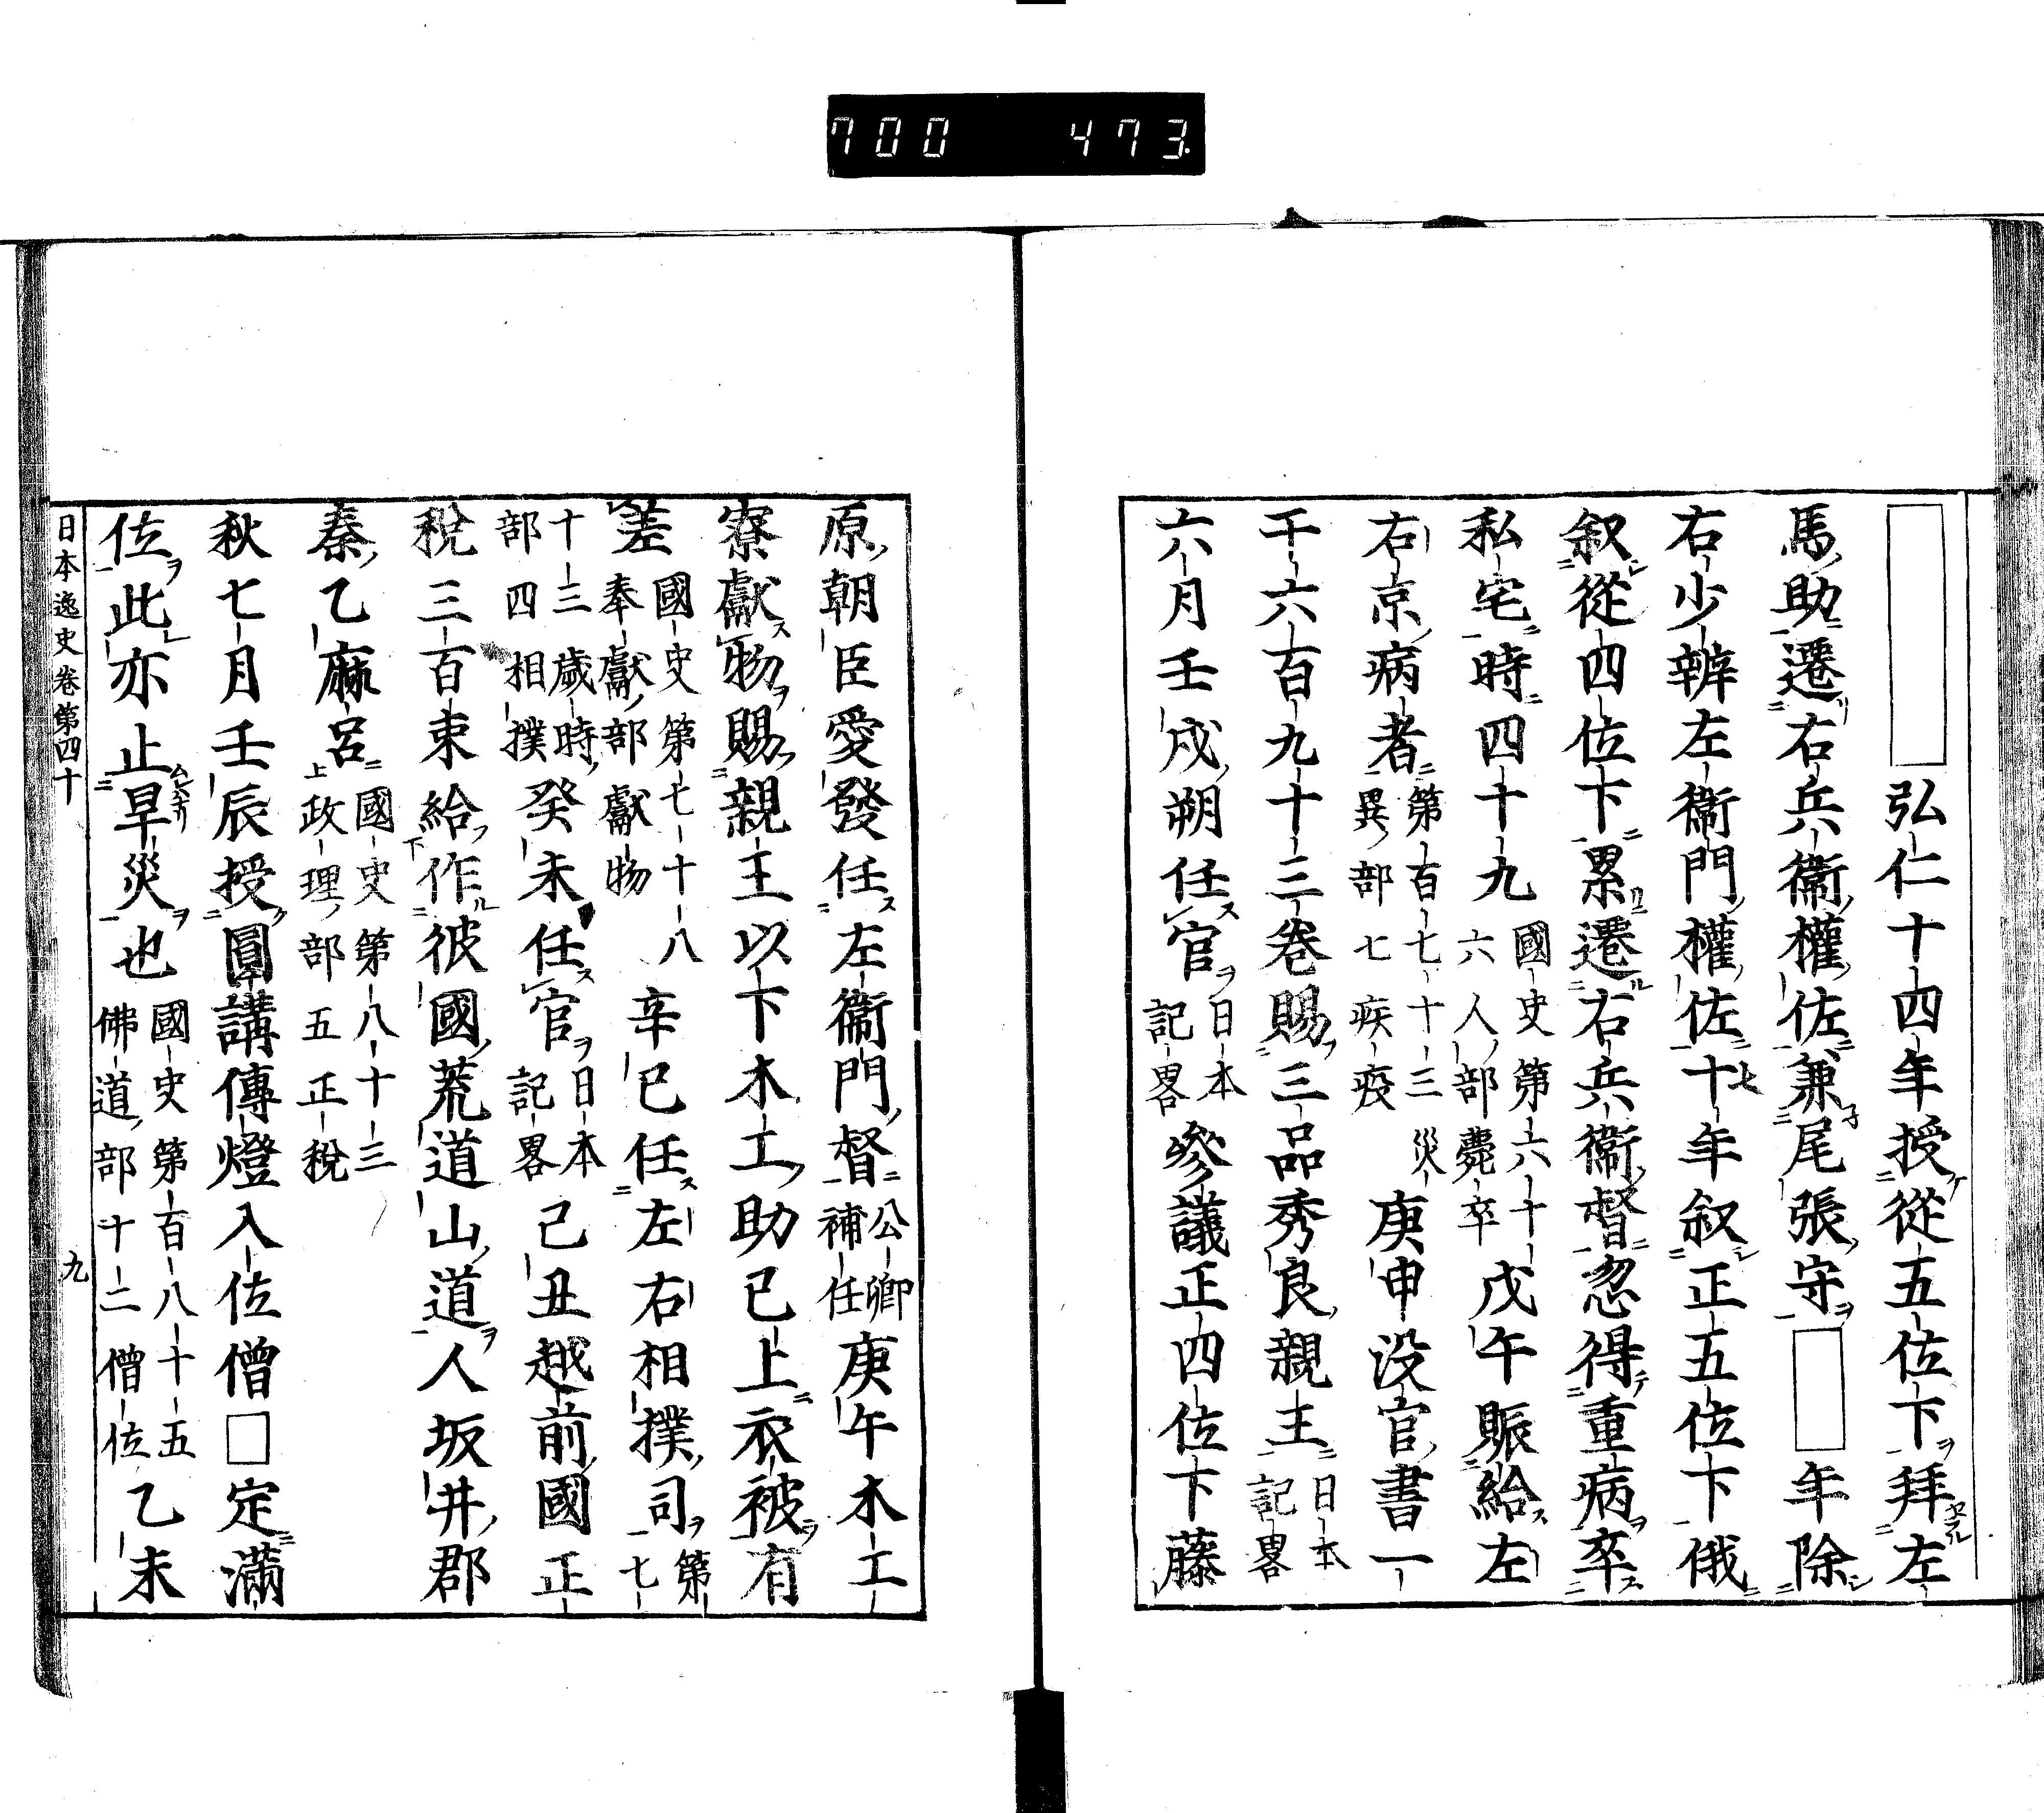 700 473
弘仁十四年授從五位下拜左
馬助遷右兵衞權佐兼尾張守□年除
右少辨左衞門權佐十年叙正五位下俄
叙從四位下累遷右兵衞督忽得重病卒
私宅時四十九國史第六十六人部薨卒戊午賑給左
右京病者第百七十三災異部七疾疫庚申没官書一
千六百九十三巻賜三品秀良親王日本記畧
六月壬戌朔任官日本記畧參議正四位下藤
原朝臣愛發任左衞門督公卿補任庚午木工
寮獻物賜親王以下木工助已上衣被有
差國史第七十八奉獻部獻物辛巳任左右相撲司第七
十三歲時部四相撲癸未任官日本記畧己丑越前國正
税三百束給作彼國荒道山道人坂井郡
秦乙麻呂國史第八十三政理部五正税
秋七月壬辰授圓講傳燈入位僧□定滿
位此亦止旱災也國史第百八十五佛道部十二僧位乙未
日本逸史卷第四十 九